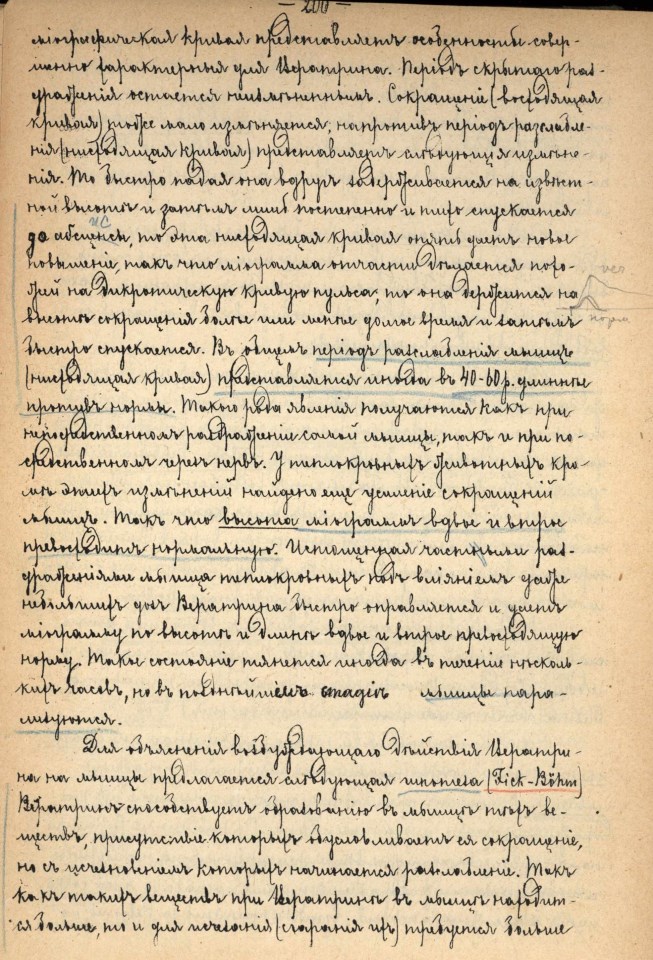 — 200 —
міографическая кривая представляетъ особенность совер-
шенно характерныя для Вератрина. Періодъ скрытаго раз-
драженія остается неизмѣненнымъ. Сокращеніе (восходящая
кривая) тоже мало измѣняется; напротивъ періодъ разслабле-
нія (нисходящая кривая) представляетъ слѣдующія измѣне-
нія. То быстро падая она вдругъ задерживается на извѣст-
ной высотѣ и затѣмъ лишь постепенно и тихо спускается
до абсциссы, то эта нисходящая кривая опять даетъ новое
повышеніе, такъ что міограмма отчасти дѣлается похо-
жей на дикротическую кривую пульса, то она держится на
высотѣ сокращенія болѣе или менѣе долгое время и затѣмъ
быстро спускается. Въ общемъ періодъ разслабленія мышцъ
(нисходящая кривая) представляется иногда въ 40-60 р. длиннѣе
противъ нормы. Такого рода явленія получаются какъ при
непосредственномъ раздраженіе самой мышцы, такъ и при по-
средственномъ черезъ нервъ. У теплокровныхъ животныхъ кро-
мѣ этихъ измѣненій найдено еще усиленіе сокращеній
мышцъ. Такъ что высота міограммъ вдвое и втрое
превосходитъ нормальную. Истощенная частными раз-
драженіями мышца теплокровныхъ подъ вліяніемъ даже
небольшихъ дозъ Вератрина быстро оправляется и даетъ
міограмму по высотѣ и длинѣ вдвое и втрое превосходящую
норму. Такое состояніе тянется иногда въ теченіе нѣсколь-
кихъ часовъ, но въ позднѣйшемъ стадіѣ мышцы пара-
лизуются.
Для объясненія возбуждающаго дѣйствія Вератри-
на на мышцы предлагается слѣдующая ипотеза (Fick-Böhm)
Вератринъ способствуетъ образованію въ мышцѣ тѣхъ ве-
ществъ, присутствіе которыхъ обусловливаетъ ея сокращеніе,
но съ исчезновеніемъ которыхъ начинается разслабленіе. Такъ
какъ такихъ веществъ при Вератринѣ въ мышцѣ находит-
ся больше, то и для исчезанія (сгаранія ихъ) требуется больше
ver
норм